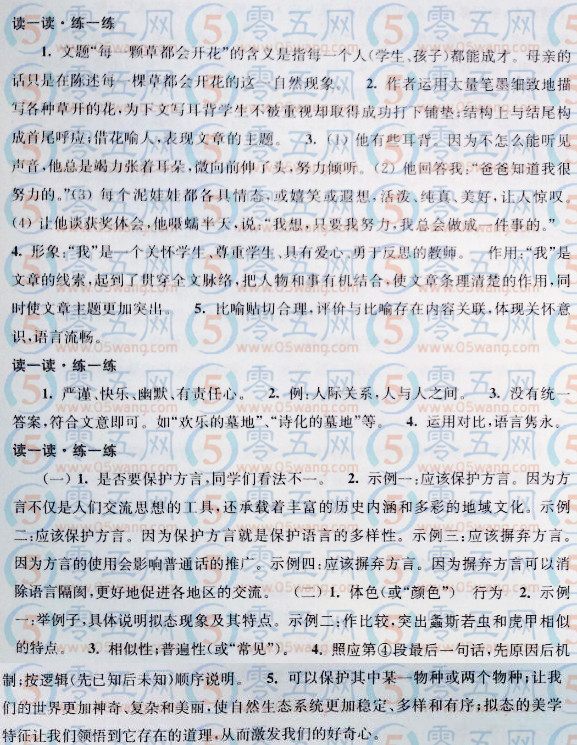 读一读·练一练
1. 文题“每一颗草都会开花”的含义是指每一个人(学生、孩子)都能成才。母亲的
话只是在陈述每一棵草都会开花的这一自然现象。 2. 作者运用大量笔墨细致地描
写各种草开的花,为下文写耳背学生不被重视却取得成功打下铺垫;结构上与结尾构
成首尾呼应;借花喻人,表现文章的主题。 3. (1) 他有些耳背。因为不怎么能听见
声音,他总是竭力张着耳朵,微向前伸了头,努力倾听。(2) 他回答我:“爸爸知道我很
努力的。”(3) 每个泥娃娃都各具情态,或嬉笑或遐想,活泼、纯真、美好,让人惊叹。
(4) 让他谈获奖体会,他嗫嚅半天,说:“我想,只要我努力,我总会做成一件事的。”
4. 形象:“我”是一个关怀学生、尊重学生、具有爱心、勇于反思的教师。 作用:“我”是
文章的线索,起到了贯穿全文脉络,把人物和事有机结合,使文章条理清楚的作用,同
时使文章主题更加突出。 5. 比喻贴切合理,评价与比喻存在内容关联,体现关怀意
识,语言流畅。
读一读·练一练
1. 严谨、快乐、幽默、有责任心。 2. 例:人际关系,人与人之间。 3. 没有统一
答案,符合文意即可。如“欢乐的墓地”、“诗化的墓地”等。 4. 运用对比,语言隽永。
读一读·练一练
(一) 1. 是否要保护方言,同学们看法不一。 2. 示例一:应该保护方言。因为方
言不仅是人们交流思想的工具,还承载着丰富的历史内涵和多彩的地域文化。示例
二:应该保护方言。因为保护方言就是保护语言的多样性。示例三:应该摒弃方言。
因为方言的使用会影响普通话的推广。示例四:应该摒弃方言。因为摒弃方言可以消
除语言隔阂,更好地促进各地区的交流。 (二) 1. 体色(或“颜色”) 行为 2. 示例
一:举例子,具体说明拟态现象及其特点。示例二:作比较,突出螽斯若虫和虎甲相似
的特点。 3. 相似性;普遍性(或“常见”)。 4. 照应第④段最后一句话,先原因后机
制;按逻辑(先已知后未知)顺序说明。 5. 可以保护其中某一物种或两个物种;让我
们的世界更加神奇、复杂和美丽,使自然生态系统更加稳定、多样和有序;拟态的美学
特征让我们领悟到它存在的道理,从而激发我们的好奇心。